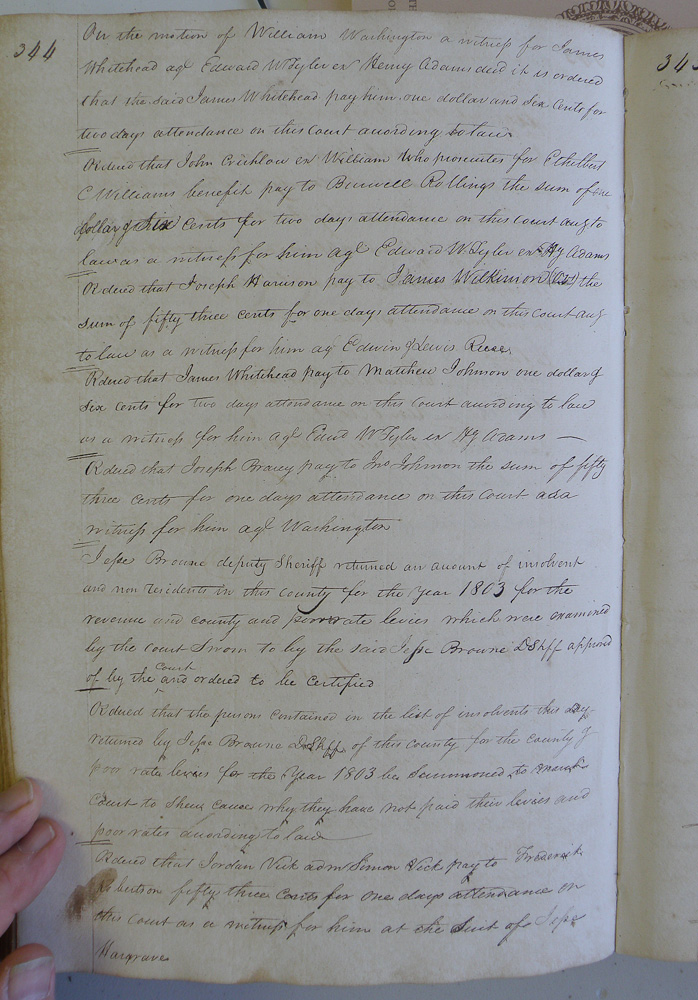 344
On the motion of William Washington a witness for James
Whitehead agt Edward W Tyler ex Henry Adams decd it is ordered
that the said James Whitehead pay him one dollar and Six Cents for
two days attendance on this Court according to law
Ordered that John Crichlow ex William who prosecutes for Ethelbert
C Williams benefit pay to Burwell Rollings the sum of one
dollar & Six Cents for two days attendance on this Court accg to
law as a witness for him agt Edward W Tyler ex Hy Adams
Ordered that Joseph Harison pay to James Wilkinson the
sum of fifty three cents for one days attendance on this Court accg
to law as a witness for him agt Edwin & Lewis Reese
Ordered that James Whitehead pay to Matthew Johnson one dollar &
Six cents for two days attendance on this Court according to law
as a witness for him agt Edwd W Tyler ex Hy Adams —
Ordered that Joseph Bracy pay to Jno Johnson the sum of fifty
three cents for one days attendance on this Court as a
witness for him agt Washington
Jesse Browne deputy Sheriff returned an account of insolvent
and non residents in this County for the Year 1803 for the
revenue and county and poor rate levies which were examined
by the court Sworn to by the said Jesse Browne DShff approved
of by the Court and ordered to be Certified
Ordered that the persons contained in the list of insolvents this day
returned by Jesse Browne DShff of this county for the county &
poor rate levies for the Year 1803 be Summoned to
Court to Shew cause why they have not paid their levies and
poor rates according to law
Ordered that Jordan Vick adm Simon Vick pay to Frederick
Robertson fifty three Cents for one days attendance on
this Court as a witness for him at the Suit of Jesse
Hargrave
34